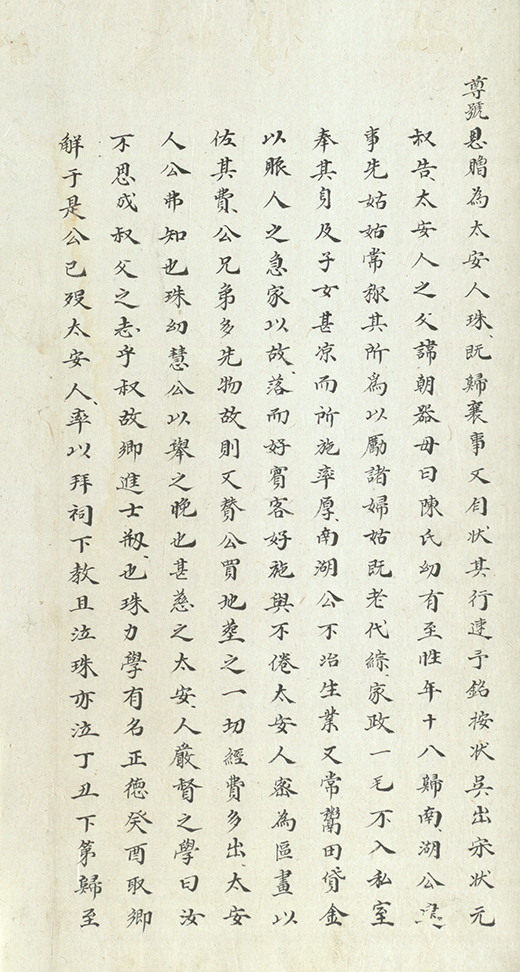 尊號恩贈為太安人珠既歸襄事又自狀其行速予銘按狀吳出宋狀元
叔告太安人之父諱朝器母曰陳氏幼有至性年十八歸南湖公逮
事先姑姑常称其所為以勵諸婦姑既老代綜家政一毛不入私室
奉其身及子女甚凉而所施率厚南湖公不治生業又常鬻田貸金
以賑人之急家以故落而好賓客好施與不倦太安人密為區畫以
佐其費公兄弟多先物故則又贊公買地塟之一切經費多出太安
人公弗知也珠幼慧公以舉之晚也甚慈之太安人嚴督之學曰汝
不思成叔父之志乎叔故鄉進士 也珠力學有名正德癸酉取鄉
解于是公已歿太安人率以拜祠下教且泣珠亦泣丁丑下第歸至